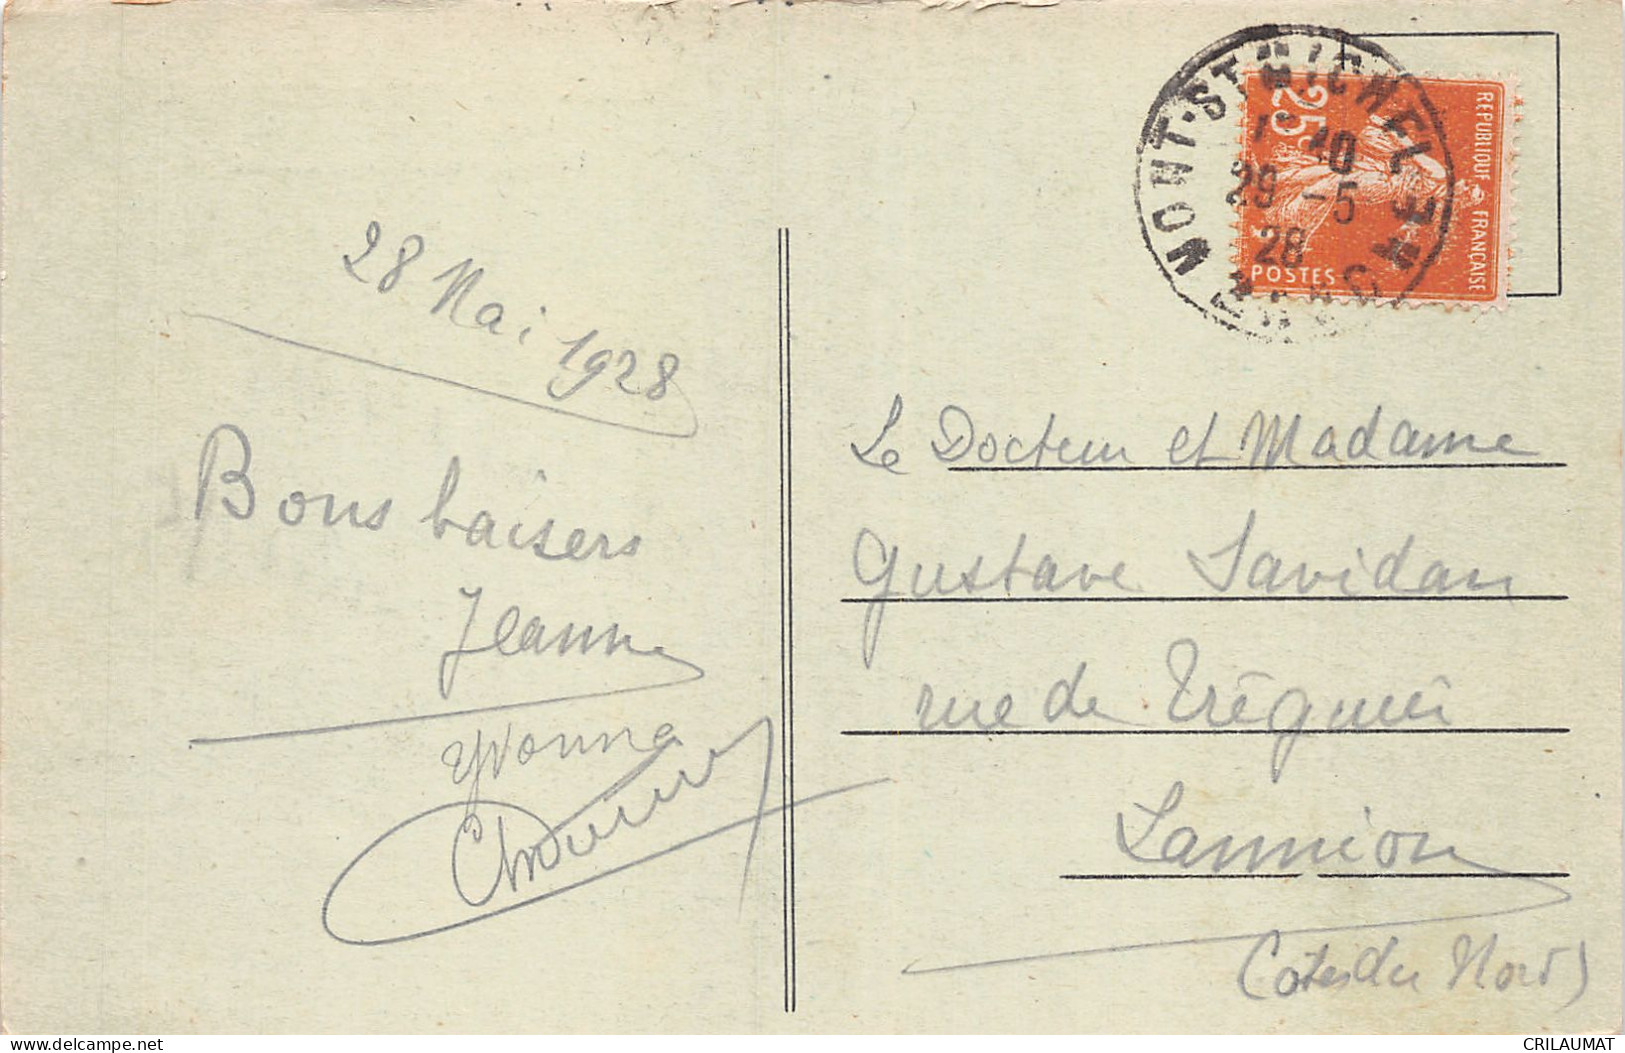 28 Mai 1928
Bons baisers
Jeanne
Yvonne
MONT-ST MICHEL
10
29 -5
28
MANCHE
25c
REPUBLIQUE FRANCAISE
POSTES
Le Docteur et Madame
Gustave Savidan
rue de Tréguier
Lannion
(Côtes du Nord)
delcampe.net
CRILAUMAT